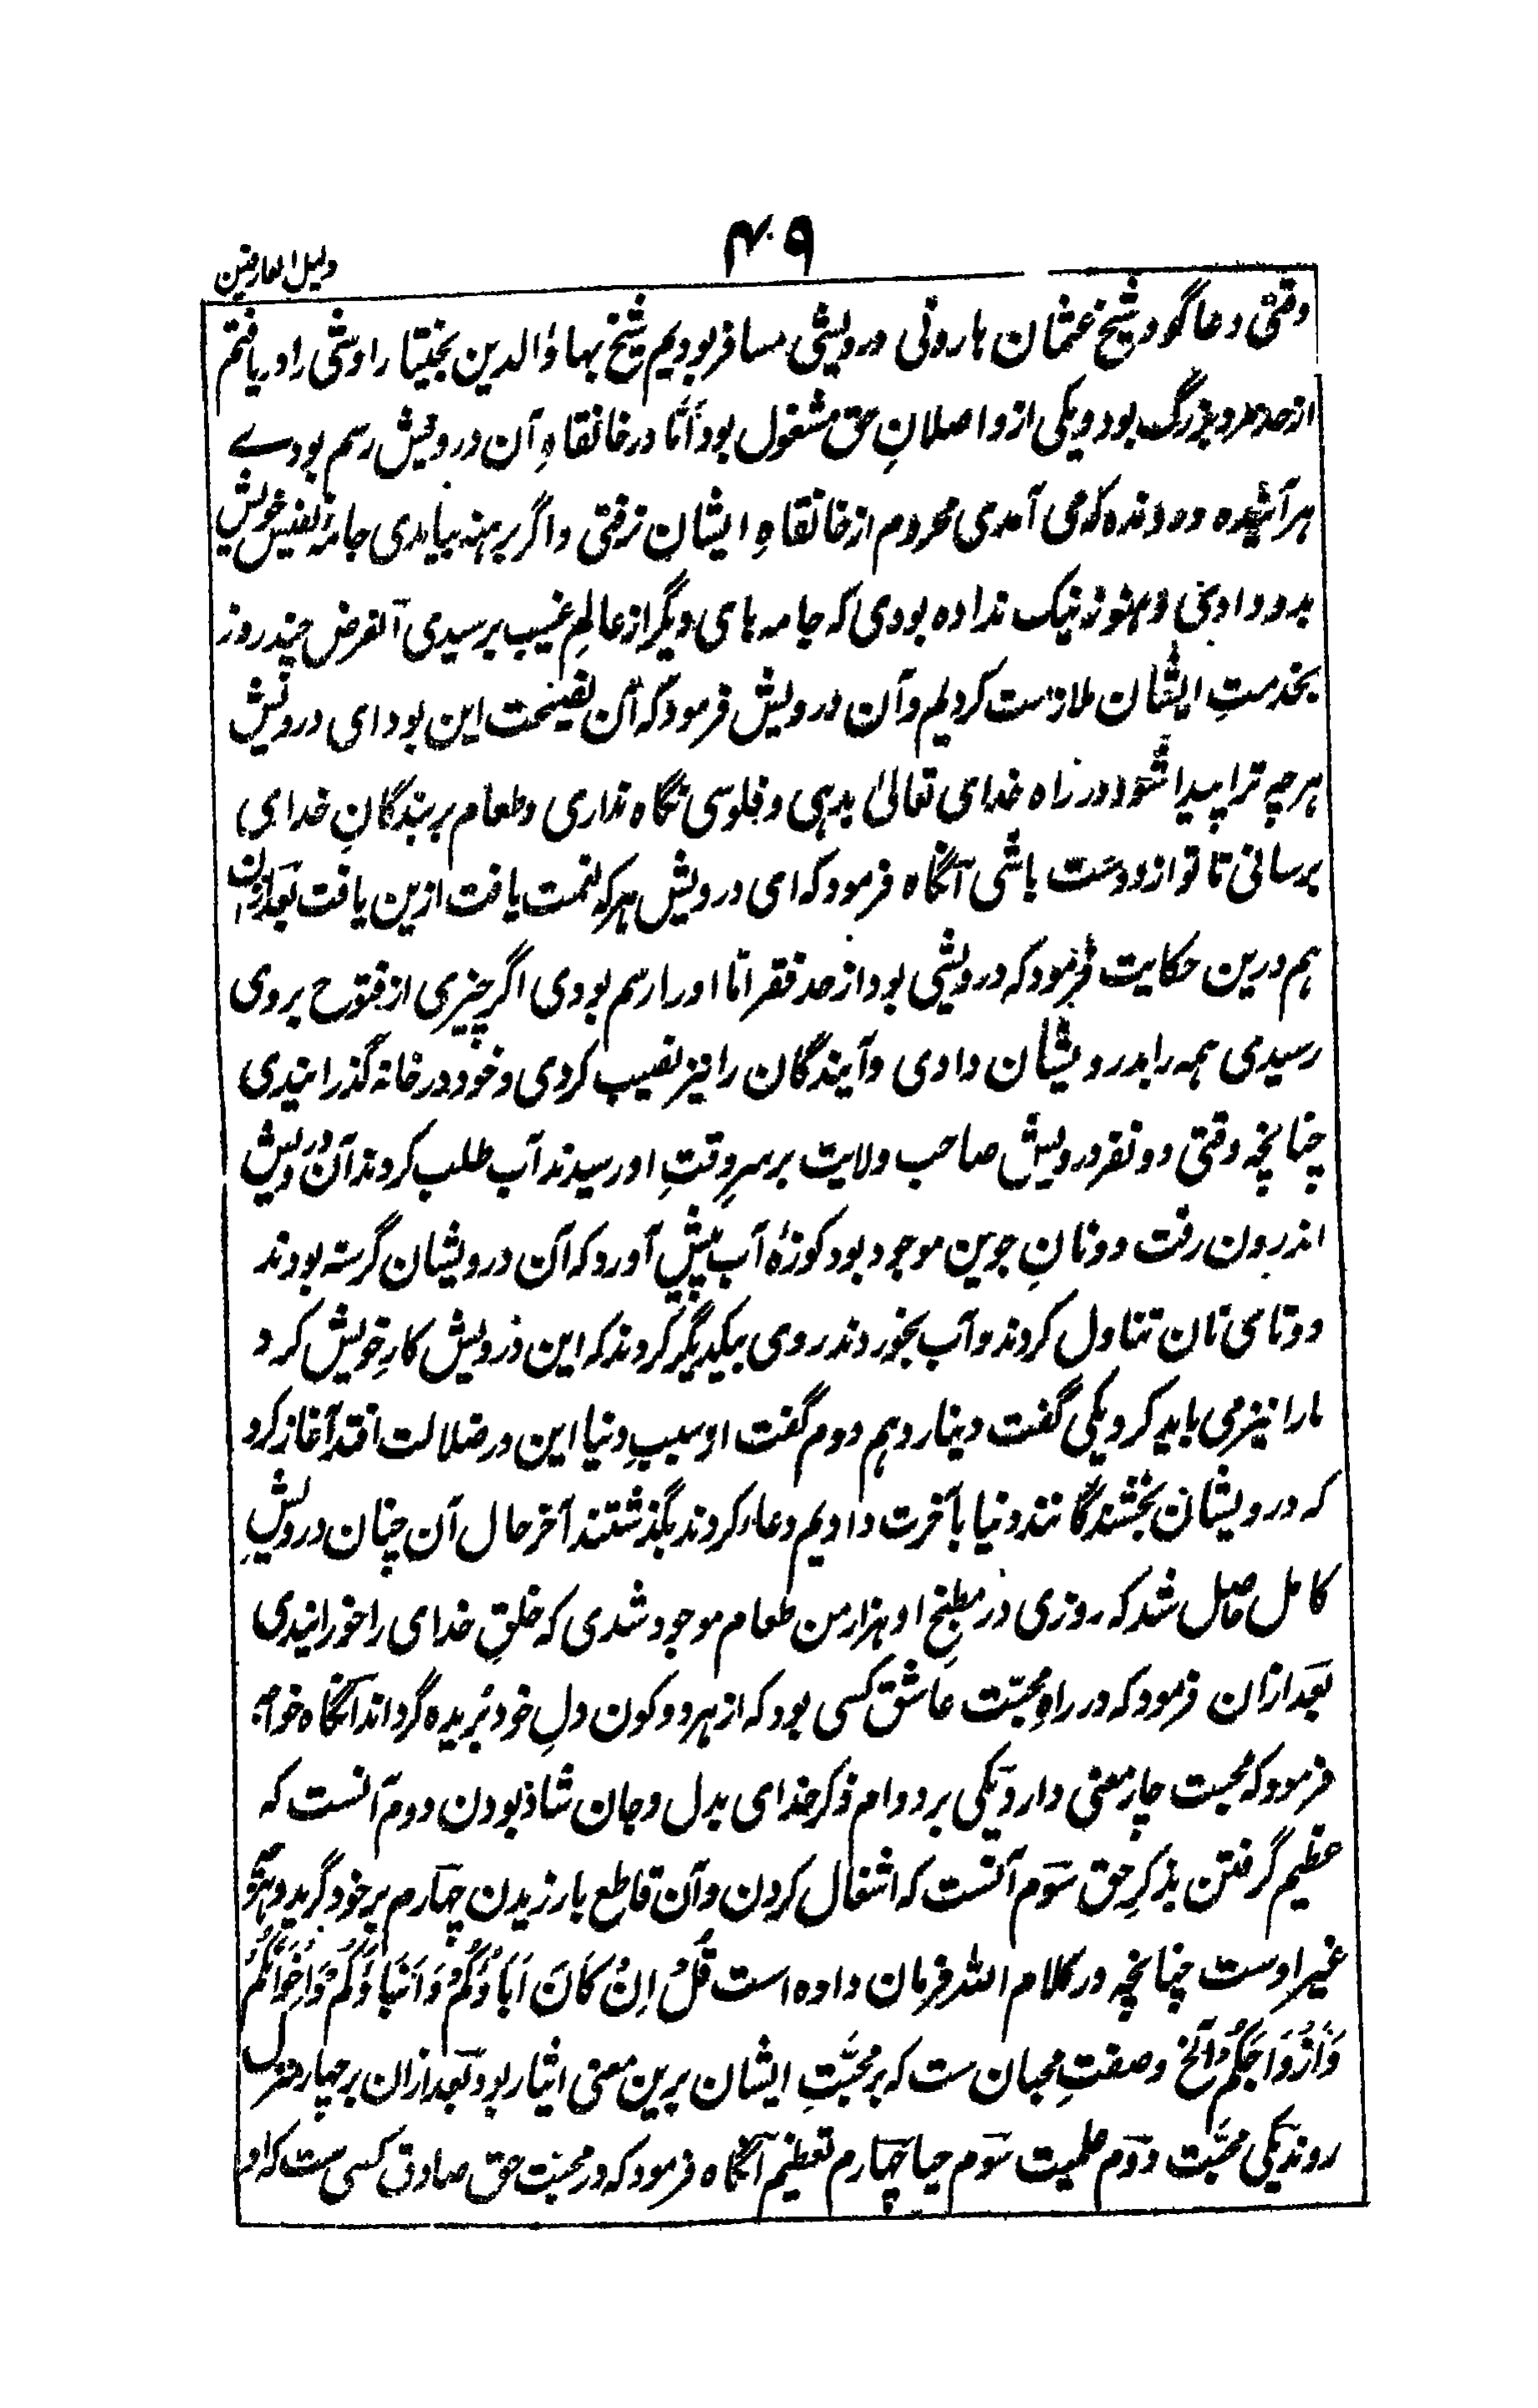 ۴۹
دلیل العارفین
وقتی دعاگو و شیخ عثمان هارونی و درویشی مسافر بودیم شیخ بهاؤالدین بختیار اوشی را دریافتم
از حد مرد بزرگ بود و یکی از واصلانِ حق مشغول بود اَمّا در خانقاهِ آن درویش رسم بودے
هر آینده و رونده که می آمدی محروم از خانقاهِ ایشان نرفتی و اگر برهنه بیامدی جامهٔ نفیس خویش
بدو دادی و هنوز نیک نداده بودی که جامه های دیگر از عالمِ غیب برسیدی الغرض چند روز
بخدمتِ ایشان ملازمت کردیم و آن درویش فرمود که آن نصیحت این بود ای درویش
هر چه ترا پیدا شود در راه خدای تعالیٰ بدهی و فلوسی نگاه نداری و طعام بر بندگانِ خدای
برسانی تا تو از دوست باشی آنگاه فرمود که ای درویش هر که نعمت یافت ازین یافت بعد ازان
هم درین حکایت فرمود که درویشی بود از حد فقر امّا او را رسم بودی اگر چیزی از فتوح بروی
رسیدی همه را بدرویشان دادی و آیندگان را نیز نصیب کردی و خود در خانه گذرانیدی
چنانچه وقتی دو نفر درویش صاحب ولایت بر سرِ وقتِ او رسیدند آب طلب کردند آن درویش
اندرون رفت دو نانِ جوین موجود بود کوزهٔ آب پیش آورد که آن درویشان گرسنه بودند
دو تا می نان تناول کردند و آب بخوردند روی بیکدیگر کردند که این درویش کارِ خویش کرد
مارا نیز می باید کرد یکی گفت دینار دهم دوم گفت او سببِ دنیا این در ضلالت افتد آغاز کرد
که درویشان بخشندگانند دنیا بآخرت دادیم دعا کردند بگذشتند آخر حال آن چنان درویشِ
کامل حاصل شد که روزی در مطبخِ او هزار من طعام موجود شدی که خلقِ خدای را خورانیدی
بعد ازان فرمود که در راهِ محبّت عاشق کسی بود که از هر دو کون دلِ خود بُریده گرداند آنگاه خواجه
فرمود که محبت چار معنی دارد یکی بر دوام ذکر خدای بدل و جان شاد بودن دوم آنست که
عظیم گرفتن بذکرِ حق سوم آنست که اشغال کردن و آن قاطع بارزیدن چهارم بر خود گرید و هرچو
غیر اوست چنانچه در کلام الله فرمان داده است قُلْ اِنْ كَانَ اٰبَاؤُكُمْ وَاَبْنَاؤُكُمْ وَاِخْوَانُكُمْ
وَاَزْوَاجُكُمْ الخ و صفتِ محبان ست که بر محبّتِ ایشان برین معنی ایثار بود بعد ازان بر چهار منزل
روند یکی محبّت دوم علمیت سوم حیا چهارم تعظیم آنگاه فرمود که در محبّت حق صادق کسی ست که او